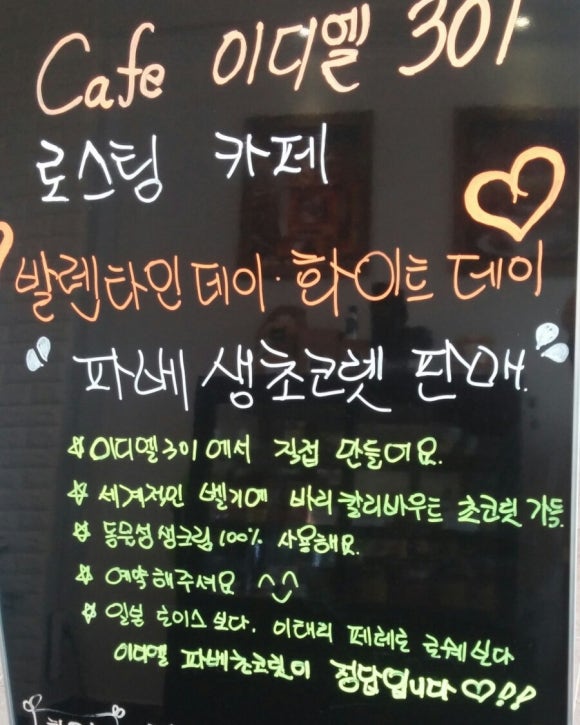 Cafe 이디엘 301
로스팅 카페
발렌타인데이·화이트데이
파베 생초코렛 판매.
☆이디엘301에서 직접 만들어요.
☆ 세계적인 벨기에 바리칼리바우트 초코렛 가득.
☆ 동물성생크림 100% 사용해요.
☆ 예약해주셔요 ^^
☆ 일본 로이스 싫다. 이태리 페레로 로쉐 싫다
이디엘 파베초코렛이 정답입니다♡!!